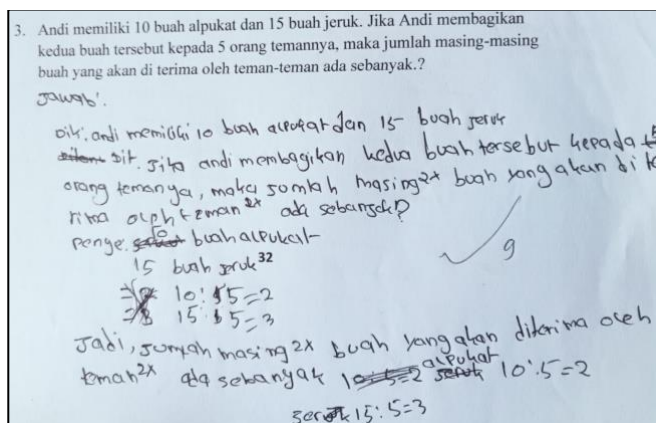 3. Andi memiliki 10 buah alpukat dan 15 buah jeruk. Jika Andi membagikan
kedua buah tersebut kepada 5 orang temannya, maka jumlah masing-masing
buah yang akan di terima oleh teman-teman ada sebanyak.?
Jawab:
Dik: andi memiliki 10 buah alpukat dan 15 buah jeruk
dit. Jika andi membagikan kedua buah tersebut kepada 5
orang temanya, maka jomlah masing2x buah yang akan di te
rima oleh teman2x ada sebanyak?
Penye. 10 buah alpukat
15 buah jeruk 32
10:5=2
15:5=3
9
Jadi, jumlah masing2x buah yang akan diterima oleh
teman2x ada sebanyak alpukat 10:5=2
jeruk 15:5=3